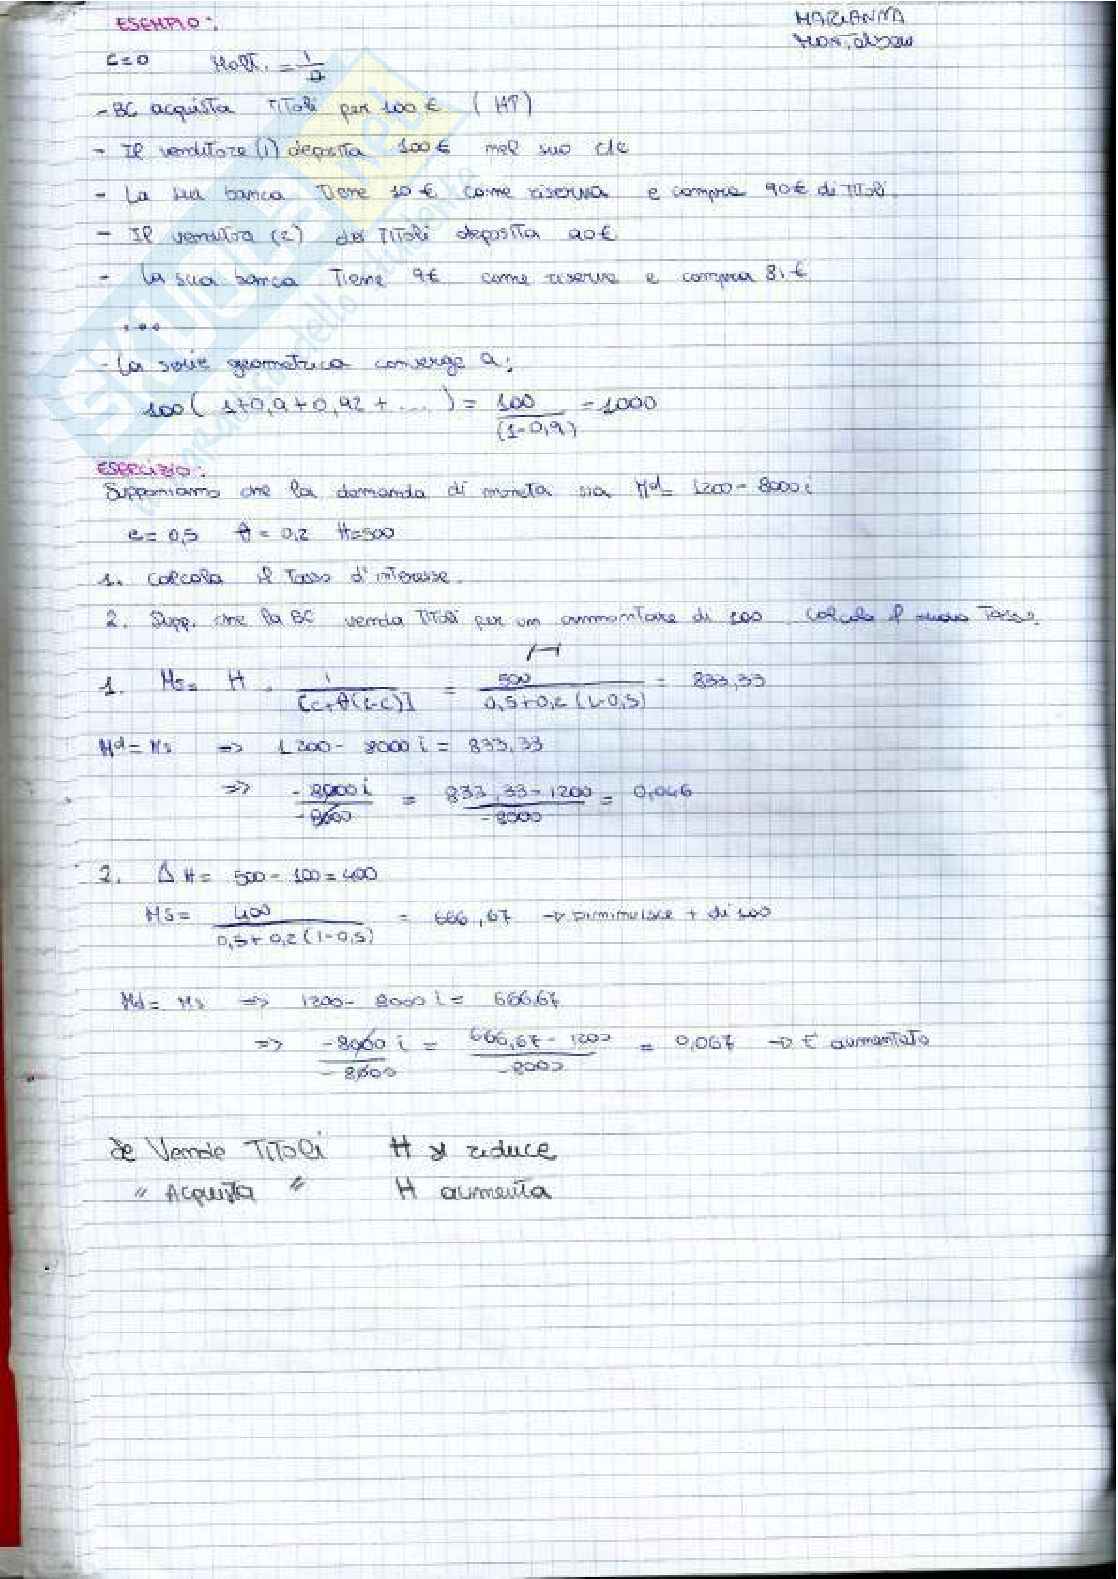 MARIANNA
ESEMPIO:
c=0 Molt. = 1/θ
- BC acquista Titoli per 100€ (H↑)
- Il venditore (1) deposita 100€ nel suo c/c
- La sua banca Tiene 10€ come riserva e compra 90€ di Titoli.
- Il venditore (2) dei Titoli deposita 90€
- La sua banca Tiene 9€ come riserva e compra 81€
...
- La serie geometrica converge a:
100 ( 1+0,9+0,92 + ... ) = 100/(1-0,9) = 1000
ESERCIZIO:
Supponiamo che la domanda di moneta sia Md= 1200-8000i
c= 0,5 θ= 0,2 H=500
1. Calcola il Tasso d'interesse.
2. Supp. che la BC venda Titoli per un ammontare di 100. Calcola il nuovo Tasso.
H
1. Ms= H . 1/[c+θ(1-c)] = 500/0,5+0,2(1-0,5) = 833,33
Md= Ms => 1200- 8000 i = 833,33
=> -8000 i/-8000 = 833,33-1200/-8000 = 0,046
2. Δ H= 500-100=400
MS= 400/0,5+0,2(1-0,5) = 666,67 -> Diminuisce + di 100
Md= Ms => 1200- 8000 i = 666,67
=> -8000 i/-8000 = 666,67-1200/-8000 = 0,067 -> È aumentato
Se Vende Titoli H si riduce
" Acquista " H aumenta
SKUOLA.net